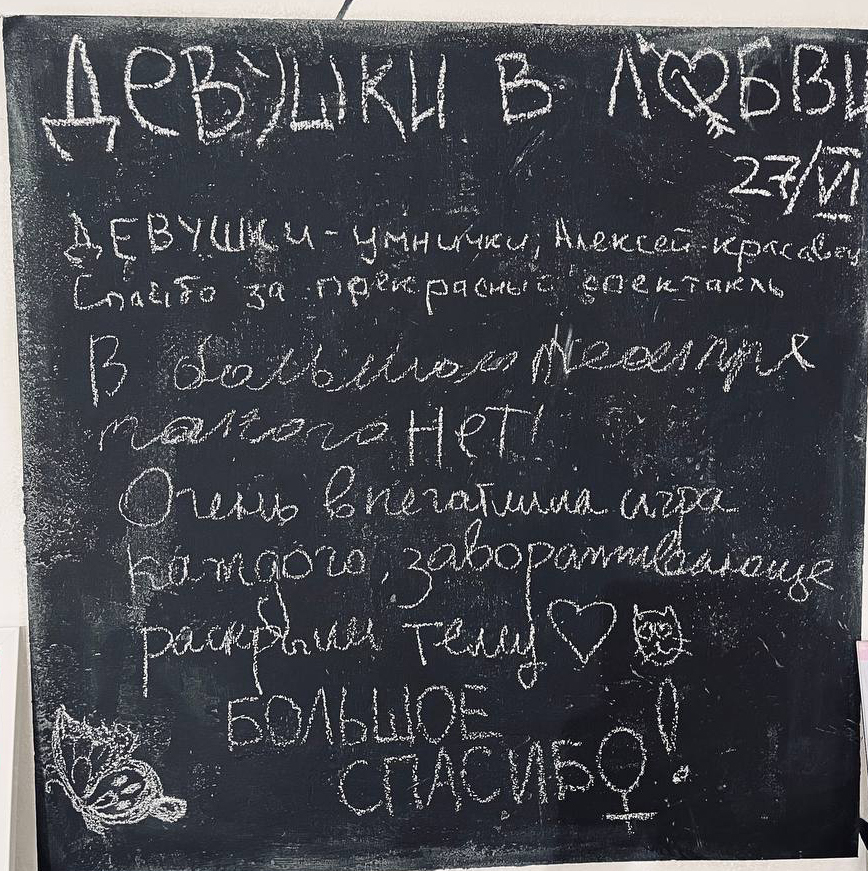 ДЕВУШКИ В ЛЮБВИ
27/VI
ДЕВУШКИ - умнички, Алексей - красавец
Спасибо за прекрасный спектакль
В большом театре
такого НЕТ!
Очень впечатлила игра
каждого, завораживающе
раскрыли тему
БОЛЬШОЕ
СПАСИБО!